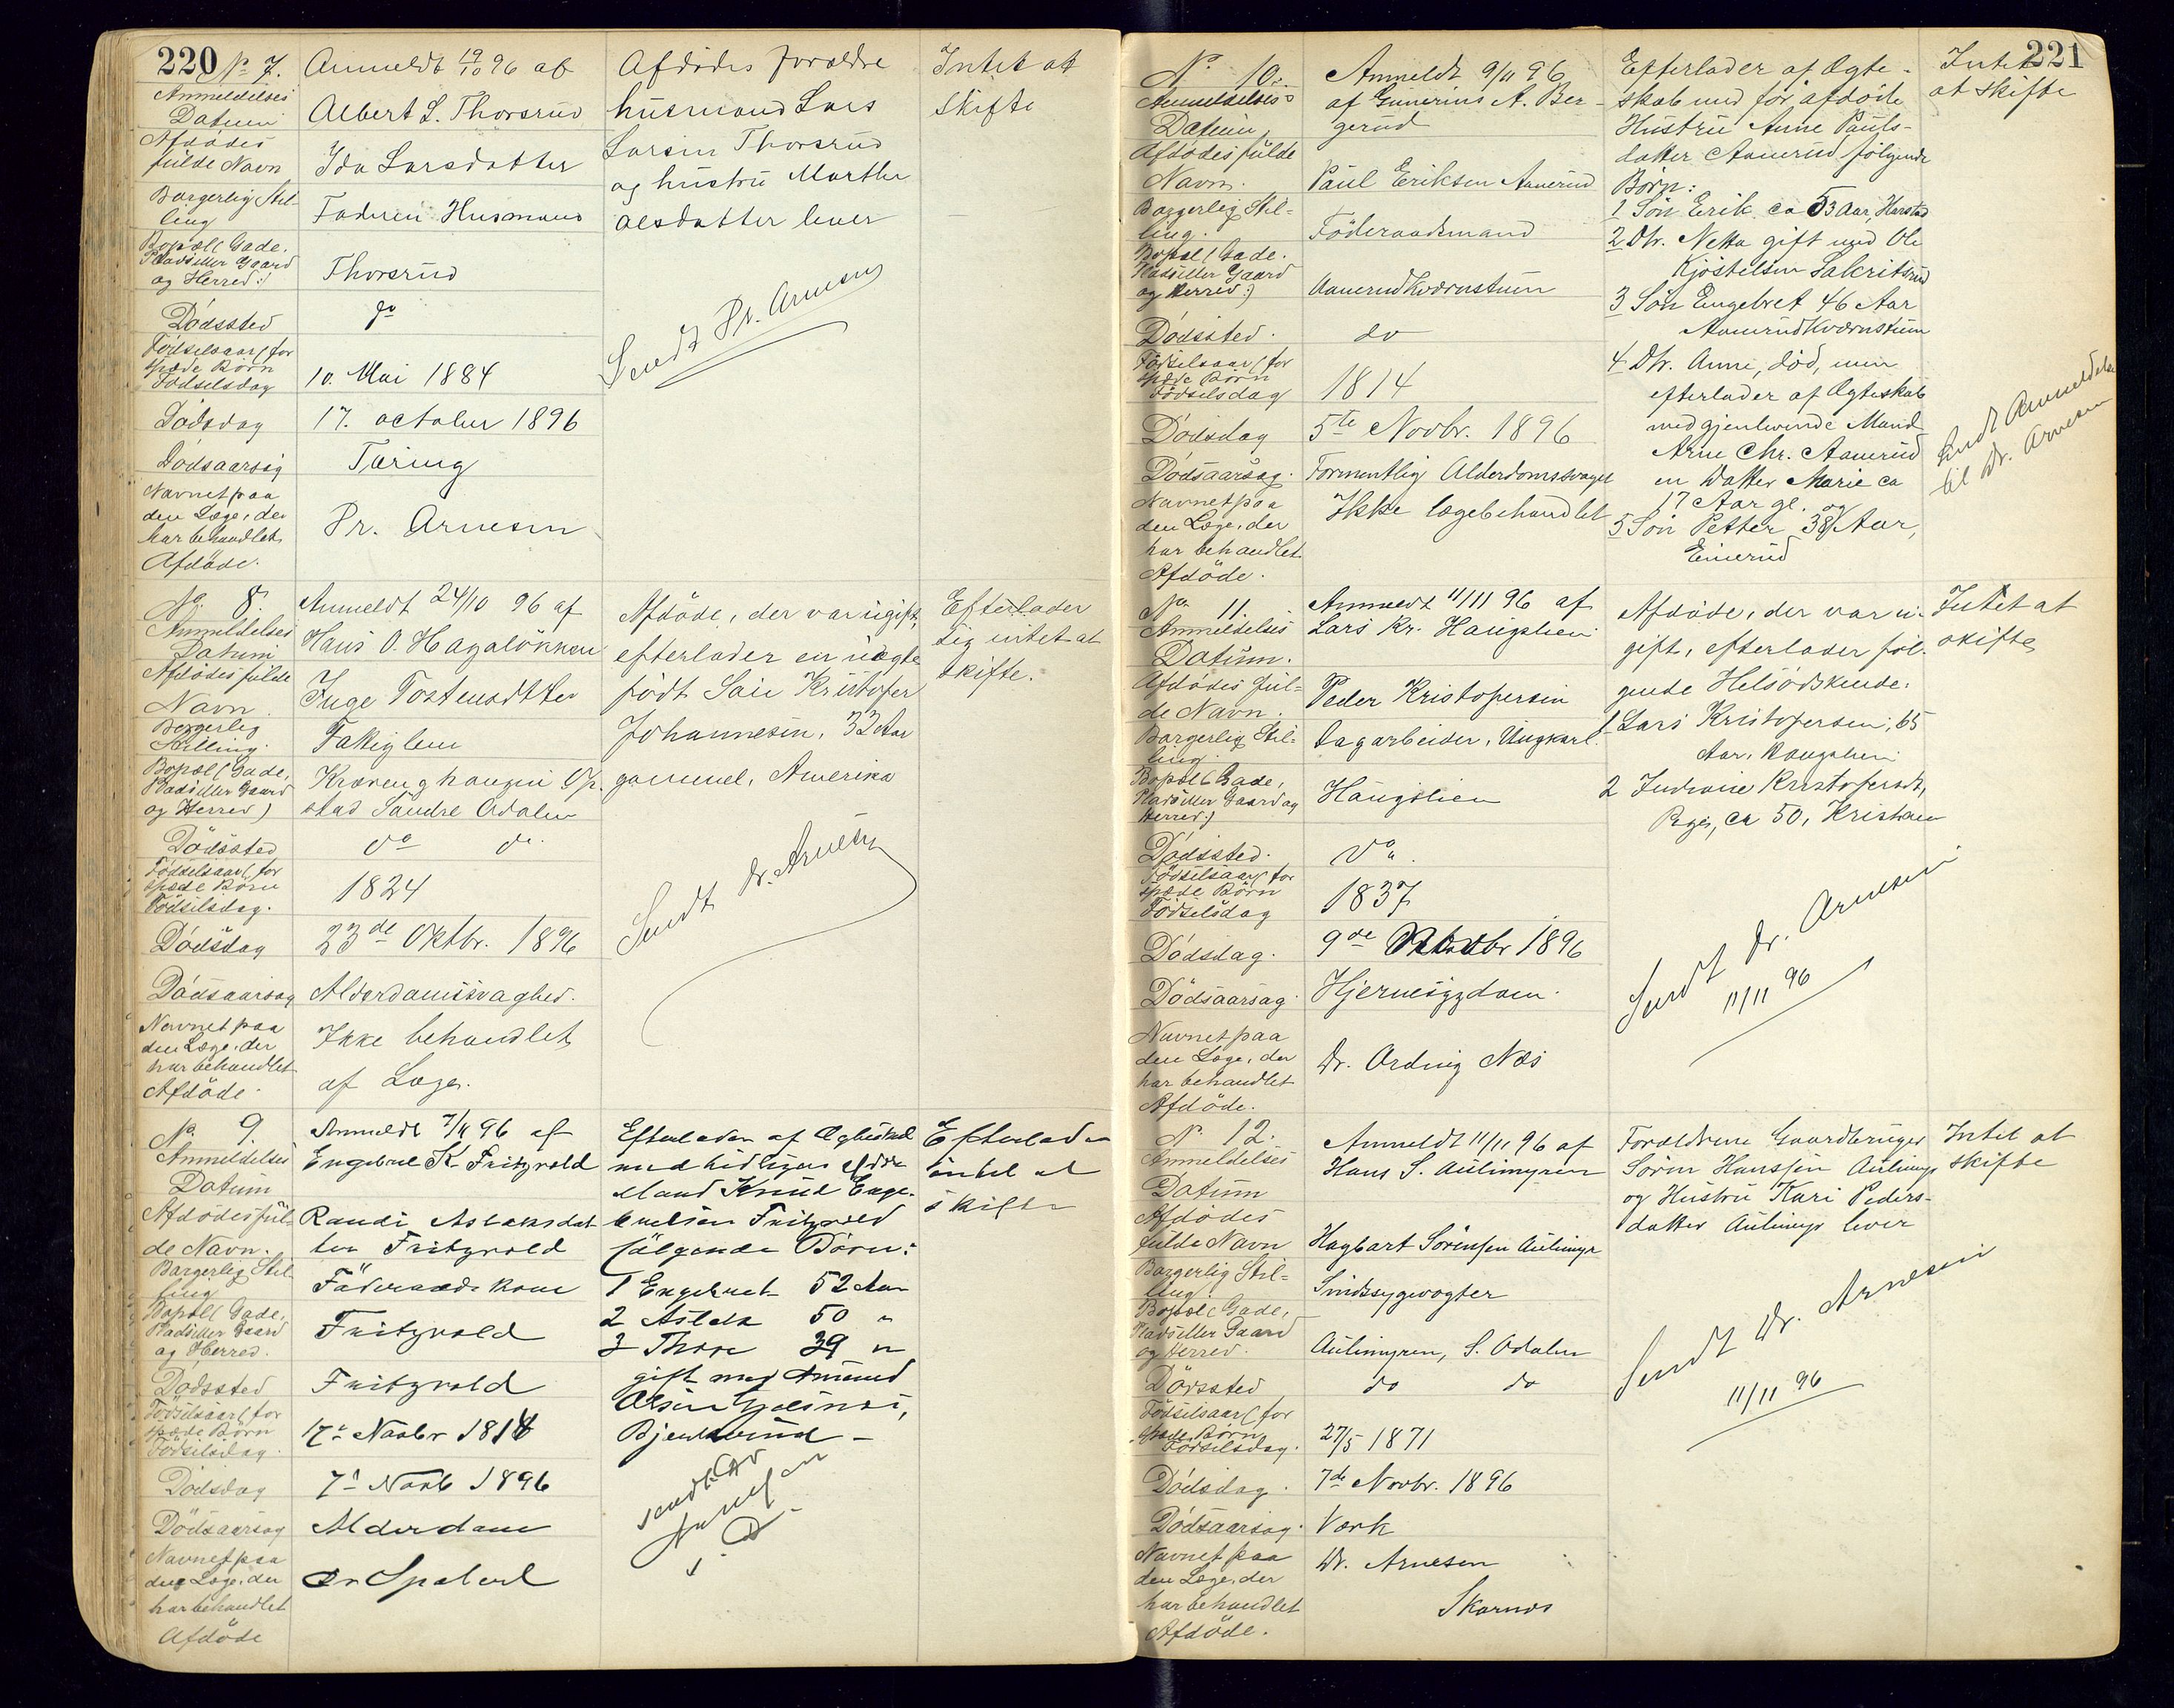 220
No 7.
Anmeldelses
Datum
Anmeldt 19/10 96 af
Albert L. Thorsrud
Afdødes
fulde Navn
Ida Larsdatter
Borgerlig Stil-
ling
Faderen Husmand
Bopæl (Gade,
Plads eller Gaard
og Herred:)
Thorsrud
Dödssted
do
Födselsaar (for
spæde Börn
Födselsdag
10. Mai 1884
Dödsdag
17. october 1896
Dödsaarsag
Tæring
Navnet paa
den Læge, der
har behandlet
Afdöde.
Dr. Arnesen
Afdødes forældre
husmand Lars
Larsen Thorsrud
og hustru Marthe
Olsdatter lever
Sendt Dr. Arnesen
Intet at
skifte
No. 8.
Anmeldelses
Datum
Anmeldt 24/10 96 af
Hans O. Hagalökken
Afdödes fulde
Navn
Inge Tostensdtter
Borgerlig
Stilling.
Fattiglem
Bopæl (Gade,
Plads eller Gaard
og Herred)
Op-
stad Söndre Odalen
Dödssted
do do.
Födselsaar (for
spæde Börn
Födselsdag.
1824
Dödsdag
23de Oktbr. 1896
Dödsaarsag
Alderdomssvaghed.
Navnet paa
den Læge, der
har behandlet
Afdöde.
Ikke behandlet
af Læge.
Afdöde, der var ugift,
efterlader en uægte
födt Sön Kristofer
Johannesen, 32 Aar
gammel, Amerika
Sendt Dr. Arnesen
Efterlader
sig intet at
skifte.
No. 9.
Anmeldelses
Datum
Anmeldt 7/11 96 af
Engebret K. Fritzvold
Afdödes ful-
de Navn.
Randi Aslaksdat
ter Fritzvold
Borgerlig Stil-
ling
Föderaadskone
Bopæl (Gade,
Plads eller Gaard
og Herred.
Fritzvold
Dödssted
Fritzvold
Födselsaar (for
spæde Börn
Födselsdag.
17de Novbr 1814
Dödsdag
7de Novb 1896
Dödsaarsag
Alderdom
Navnet paa
den Læge, der
har behandlet
Afdöde
Dr
Efterlader af Ægteskab
med tidligere afdöde
Mand Knud Enge-
bretsen Fritzvold
fölgende Börn:
1 Engebret 52 Aar
2 Aslak 50 "
3 Thore 39 "
gift med Amund
Olsen
Sendt Dr
Arnesen
Efterlader
intet at
skifte
221
No 10.
Anmeldelses
Datum,
Anmeldt 9/11 96
af Gunerius A. Ber-
gerud
Afdödes fulde
Navn.
Paul Eriksen Aanerud
Borgerlig Stil-
ling.
Föderaadsmand
Bopæl (Gade.
Plads eller Gaard
og Herred:)
Aanerudkværnstuen
Dödssted.
do
Födselsaar (for
spæde Börn
Födselsdag
1814
Dödsdag
5te Novbr. 1896
Dödsaarsag.
Formentlig Alderdomssvaghed
Navnet paa
den Læge, der
har behandlet
Afdöde.
Ikke lægebehandlet
Efterlader af Ægte-
skab med för afdöde
Hustru Anne Pauls-
datter Aanerud fölgende
Börn:
1 Sön Erik ca 53 Aar, Harstad
2 Dtr. Netta gift med Ole
Kjöstelsen
3 Sön Engebret 46 Aar
Aanerudkværnstuen
4 Dtr. Anne, död, men
efterlader af Ægteskab
med gjenlevende Mand
Arne Chr. Aanerud
en Datter Marie ca
17 Aar gl. og
5 Sön Petter 38 Aar,
Einerud
Intet
at skifte
Sendt Anmeldelse
til Dr. Arnesen
No. 11.
Anmeldelses
Datum.
Anmeldt 11/11 96 af
Lars Kr. Haugslien
Afdödes ful-
de Navn.
Peder Kristofersen
Borgerlig Stil-
ling.
Dagarbeider, Ungkarl.
Bopæl (Gade,
Plads eller Gaard og
Herred:)
Haugslien
Dödssted.
Do.
Födselsaar (for
spæde Börn
Födselsdag
1837
Dödsdag.
9de Novbr 1896
Dödsaarsag.
Hjernesygdom.
Navnet paa
den Læge, der
har behandlet
Afdöde.
Dr. Ording Næs
Afdöde, der var u-
gift, efterlader föl-
gende Helsödskende.
1 Lars Kristofersen, 65
Aar, Haugslien
2 Kristofersdt,
Pige, ca 50, Kristiania
Sendt Dr. Arnesen
11/11 96
Intet at
skifte
No 12.
Anmeldelses
Datum
Anmeldt 11/11 96 af
Hans S. Aulimyren
Afdödes
fulde Navn
Hagbart Sörensen Aulimyr
Borgerlig Stil-
ling
Sindssygevogter
Bopæl (Gade,
Plads eller Gaard
og Herred.
Aulimyren, S. Odalen
Dödssted
do do
Födselsaar (for
spæde Börn
Födselsdag.
27/5 1871
Dödsdag.
7de Novbr. 1896
Dödsaarsag.
Værk
Navnet paa
den Læge, der
har behandlet
Afdöde.
Dr. Arnesen
Skarnæs
Forældrene Gaardbruger
Sören Hanssen Aulimyr
og Hustru Kari Peders-
datter Aulimyr lever
Sendt Dr. Arnesen
11/11 96
Intet at
skifte